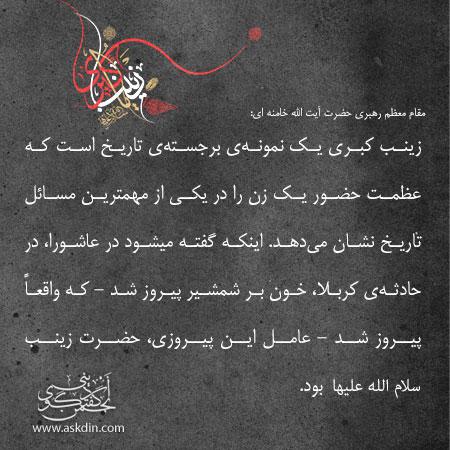 زینب
مقام معظم رهبری حضرت آیت الله خامنه ای:
زینب کبری یک نمونه‌ی برجسته‌ی تاریخ است که
عظمت حضور یک زن را در یکی از مهمترین مسائل
تاریخ نشان می‌دهد. اینکه گفته میشود در عاشورا، در
حادثه‌ی کربلا، خون بر شمشیر پیروز شد – که واقعاً
پیروز شد – عامل این پیروزی، حضرت زینب
سلام الله علیها بود.
www.askdin.com